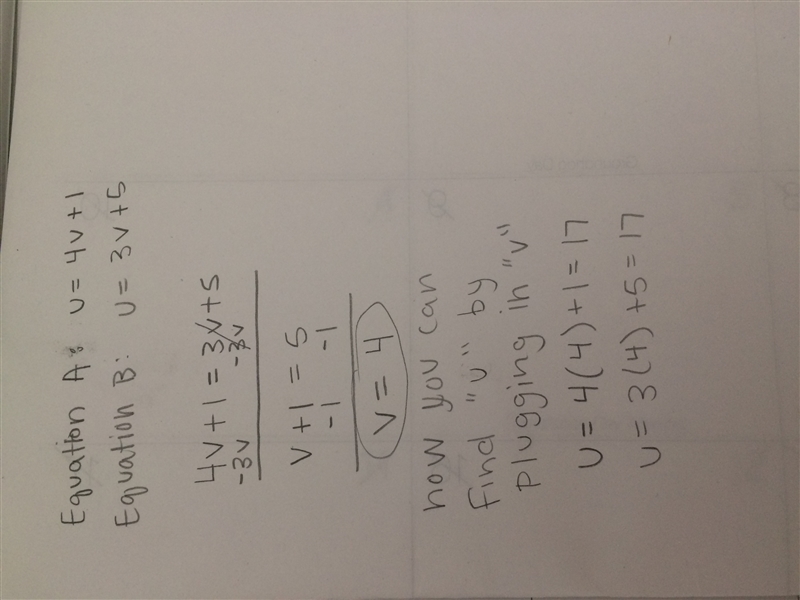 Equation A: u = 4v+1
Equation B: u = 3v+5
4v+1 = 3v+5
-3v -3v
v+1 = 5
-1 -1
v = 4
now you can
find "u" by
plugging in "v"
u = 4(4)+1 = 17
u = 3(4)+5 = 17